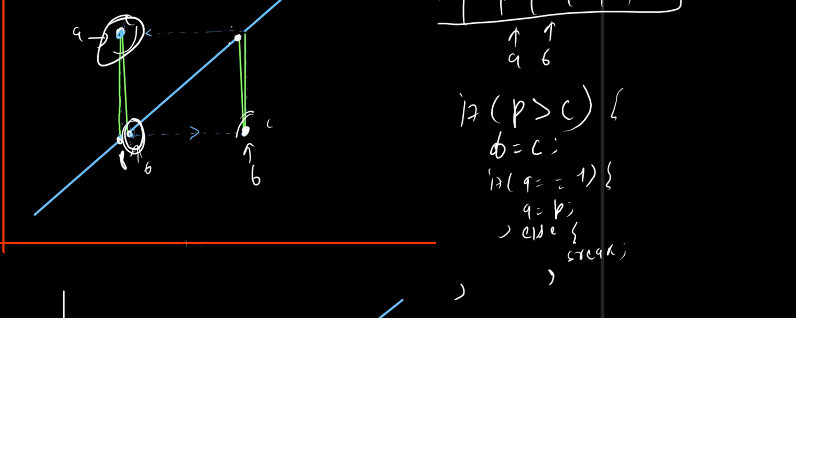 a
b
c
b
a b
if(p>c){
b=c;
if(a==-1){
a=p;
} else {
break;
}
}